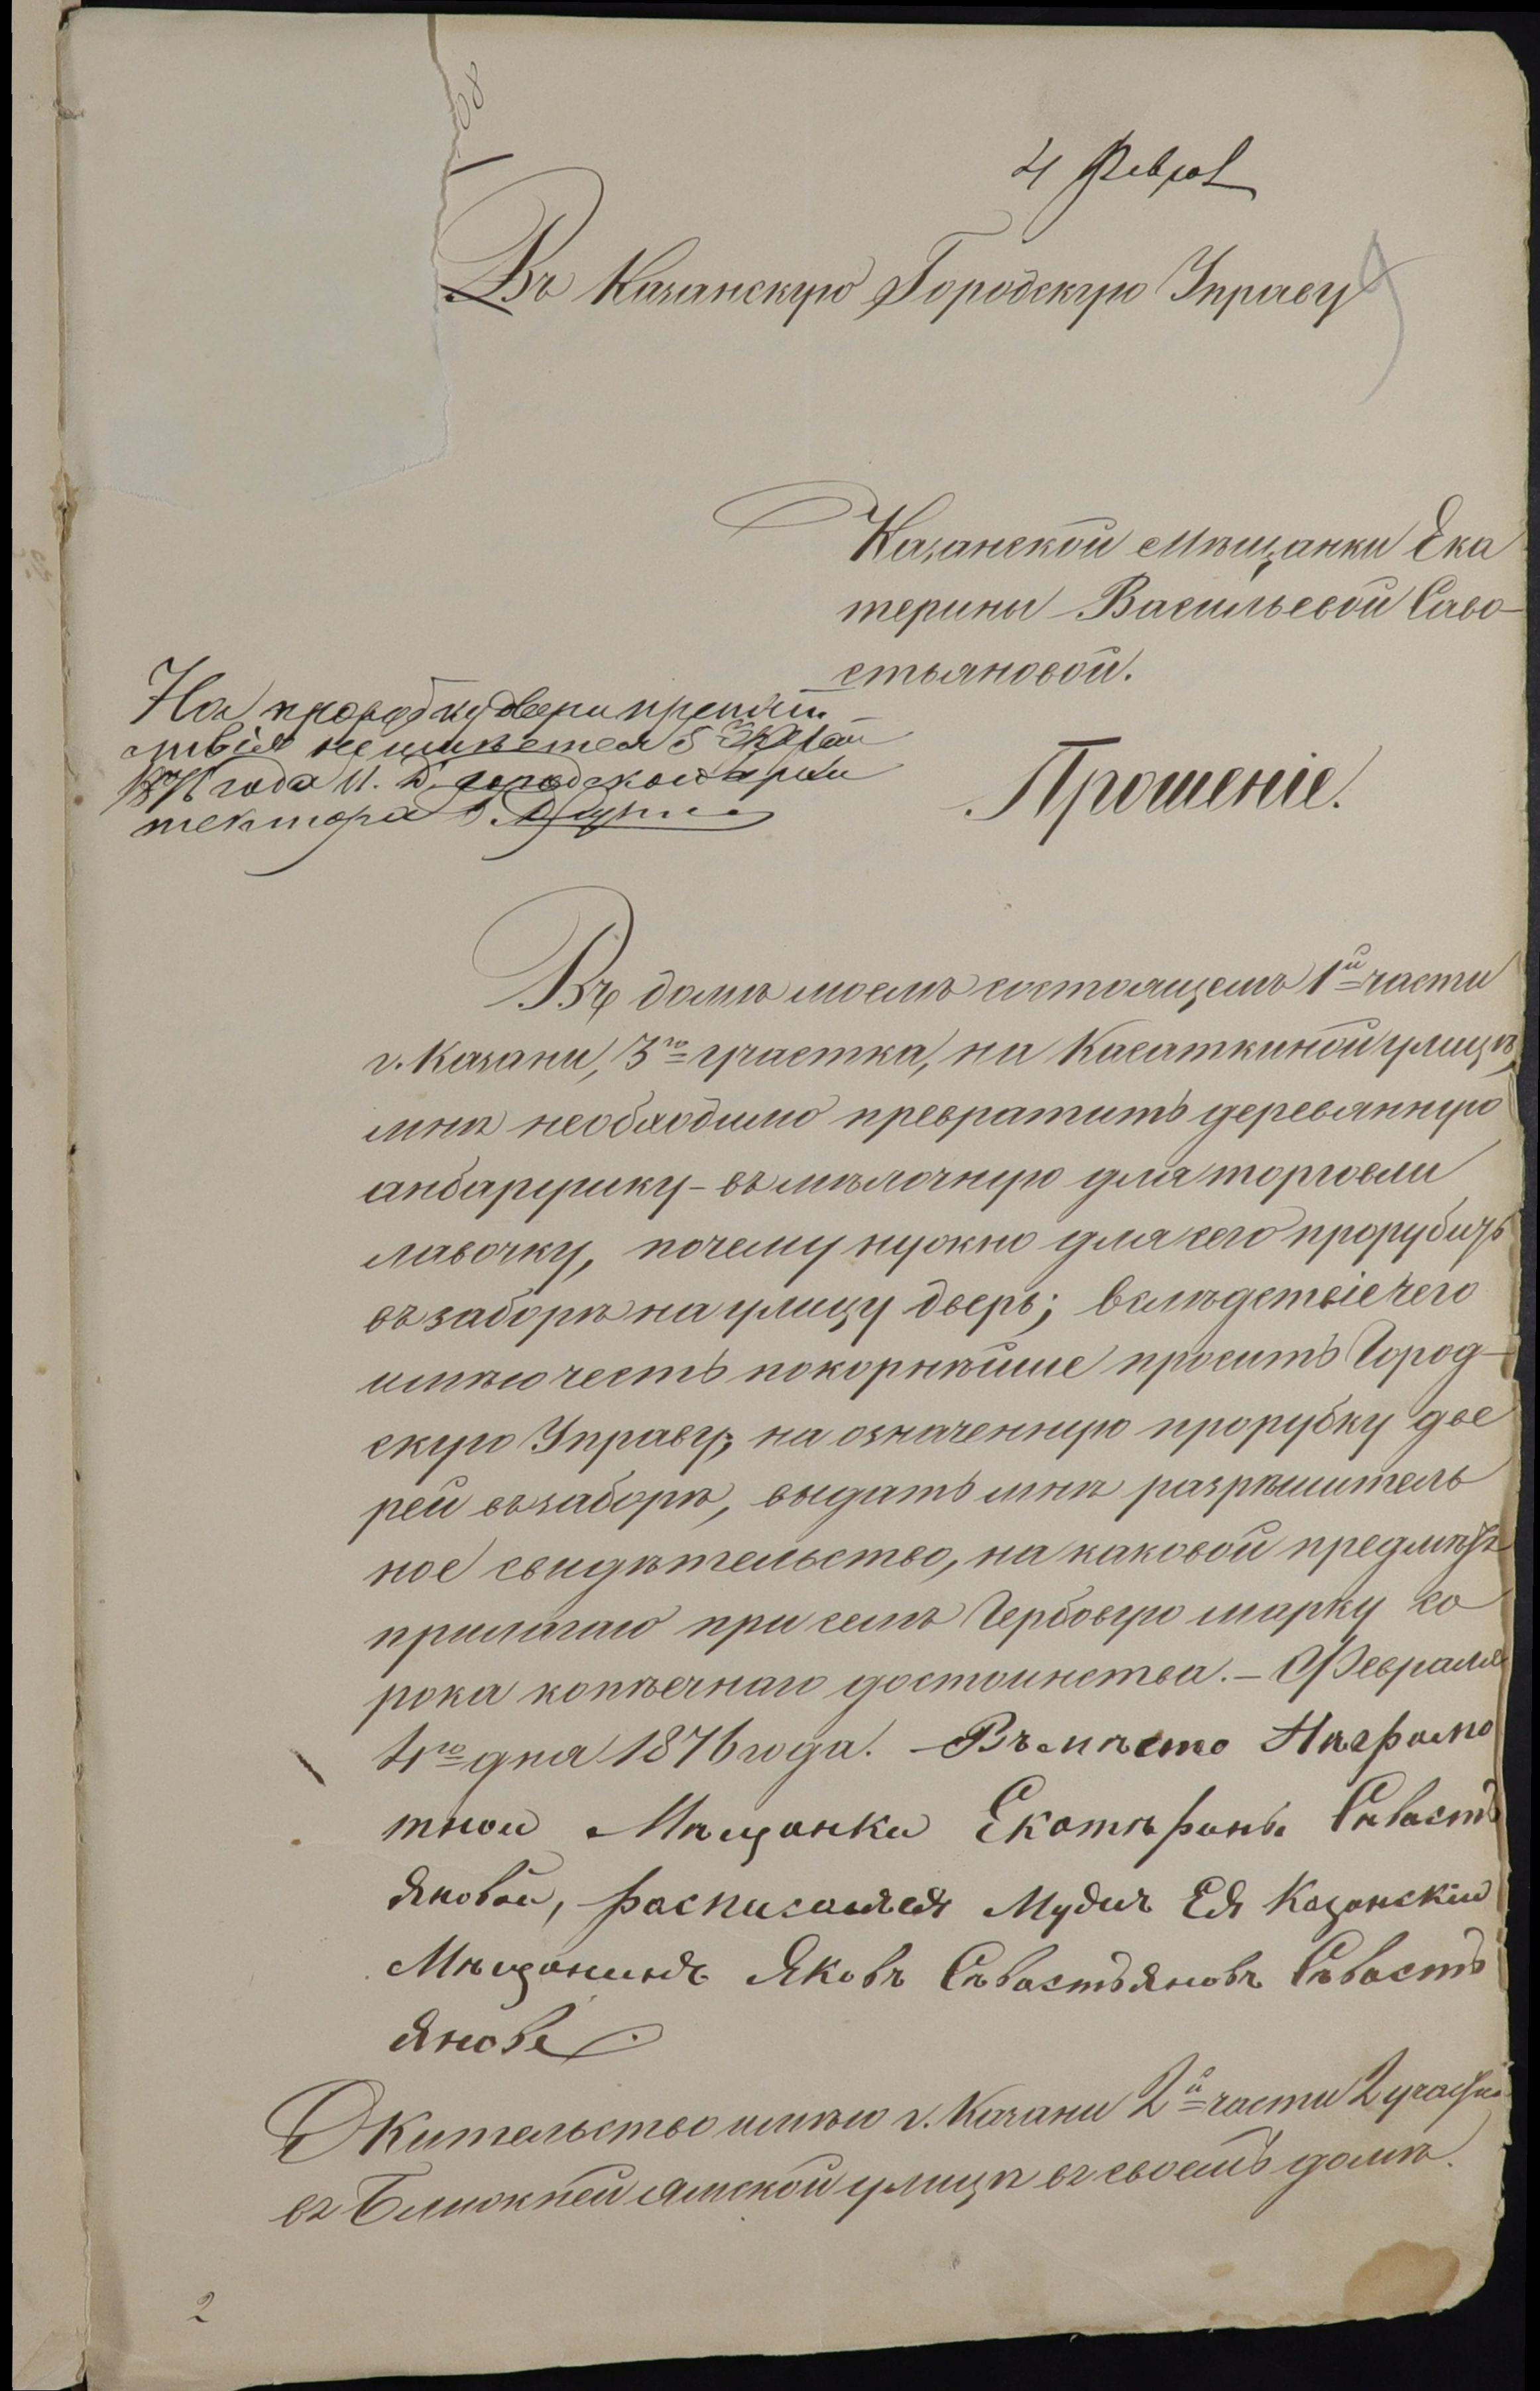 4 Феврал
Въ Казанскую Городскую Управу
Казанской мѣщанки Ека
терины Васильевой Саво-
стьяновой.
На прорубку двери препят
ствія не имѣется 5
1876 года И. д. городскаго архи
тектора
Прошеніе.
Въ домѣ моемъ состоящемъ 1й части
г. Казани, 3го участка, на Касаткиной улицѣ,
мнѣ необходимо превратить деревянную
анбарушку - въ мѣлочную для торговли
лавочку, почему нужно для сего прорубить
въ заборѣ на улицу дверь; вслѣдствіе чего
имѣю честь покорнѣйше просить Город-
скую Управу, на означенную прорубку две
рей въ заборѣ, выдать мнѣ разрѣшитель
ное свидѣтельство, на каковой предмѣтъ
прилагаю при семъ Гербовую марку со
рока копѣечнаго достоинства. - Февраля
4го дня 1876 года. Въмѣсто Нѣграмо
тной Мѣщанки Екатѣрины Сѣвасть
яновой, росписался Мужъ Ея Казанскій
Мѣщанинъ Яковъ Сѣвастьяновъ Сѣвасть
яновъ.
Жительство имѣю г. Казани 2й части 2 участка
въ Ближней Ямской улицѣ въ своемъ домѣ.
2